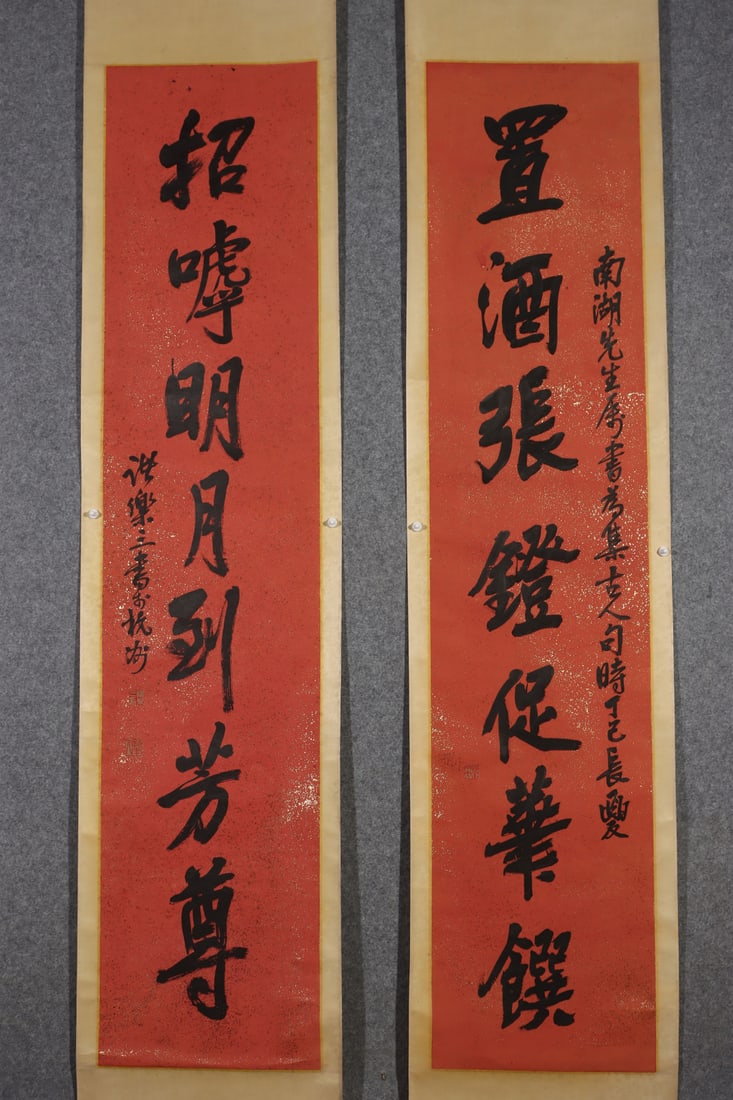 置酒張鐙促華饌
南湖先生屬書為集古人句時丁巳長夏
招嘑明月到芳尊
諸樂三書於杭州